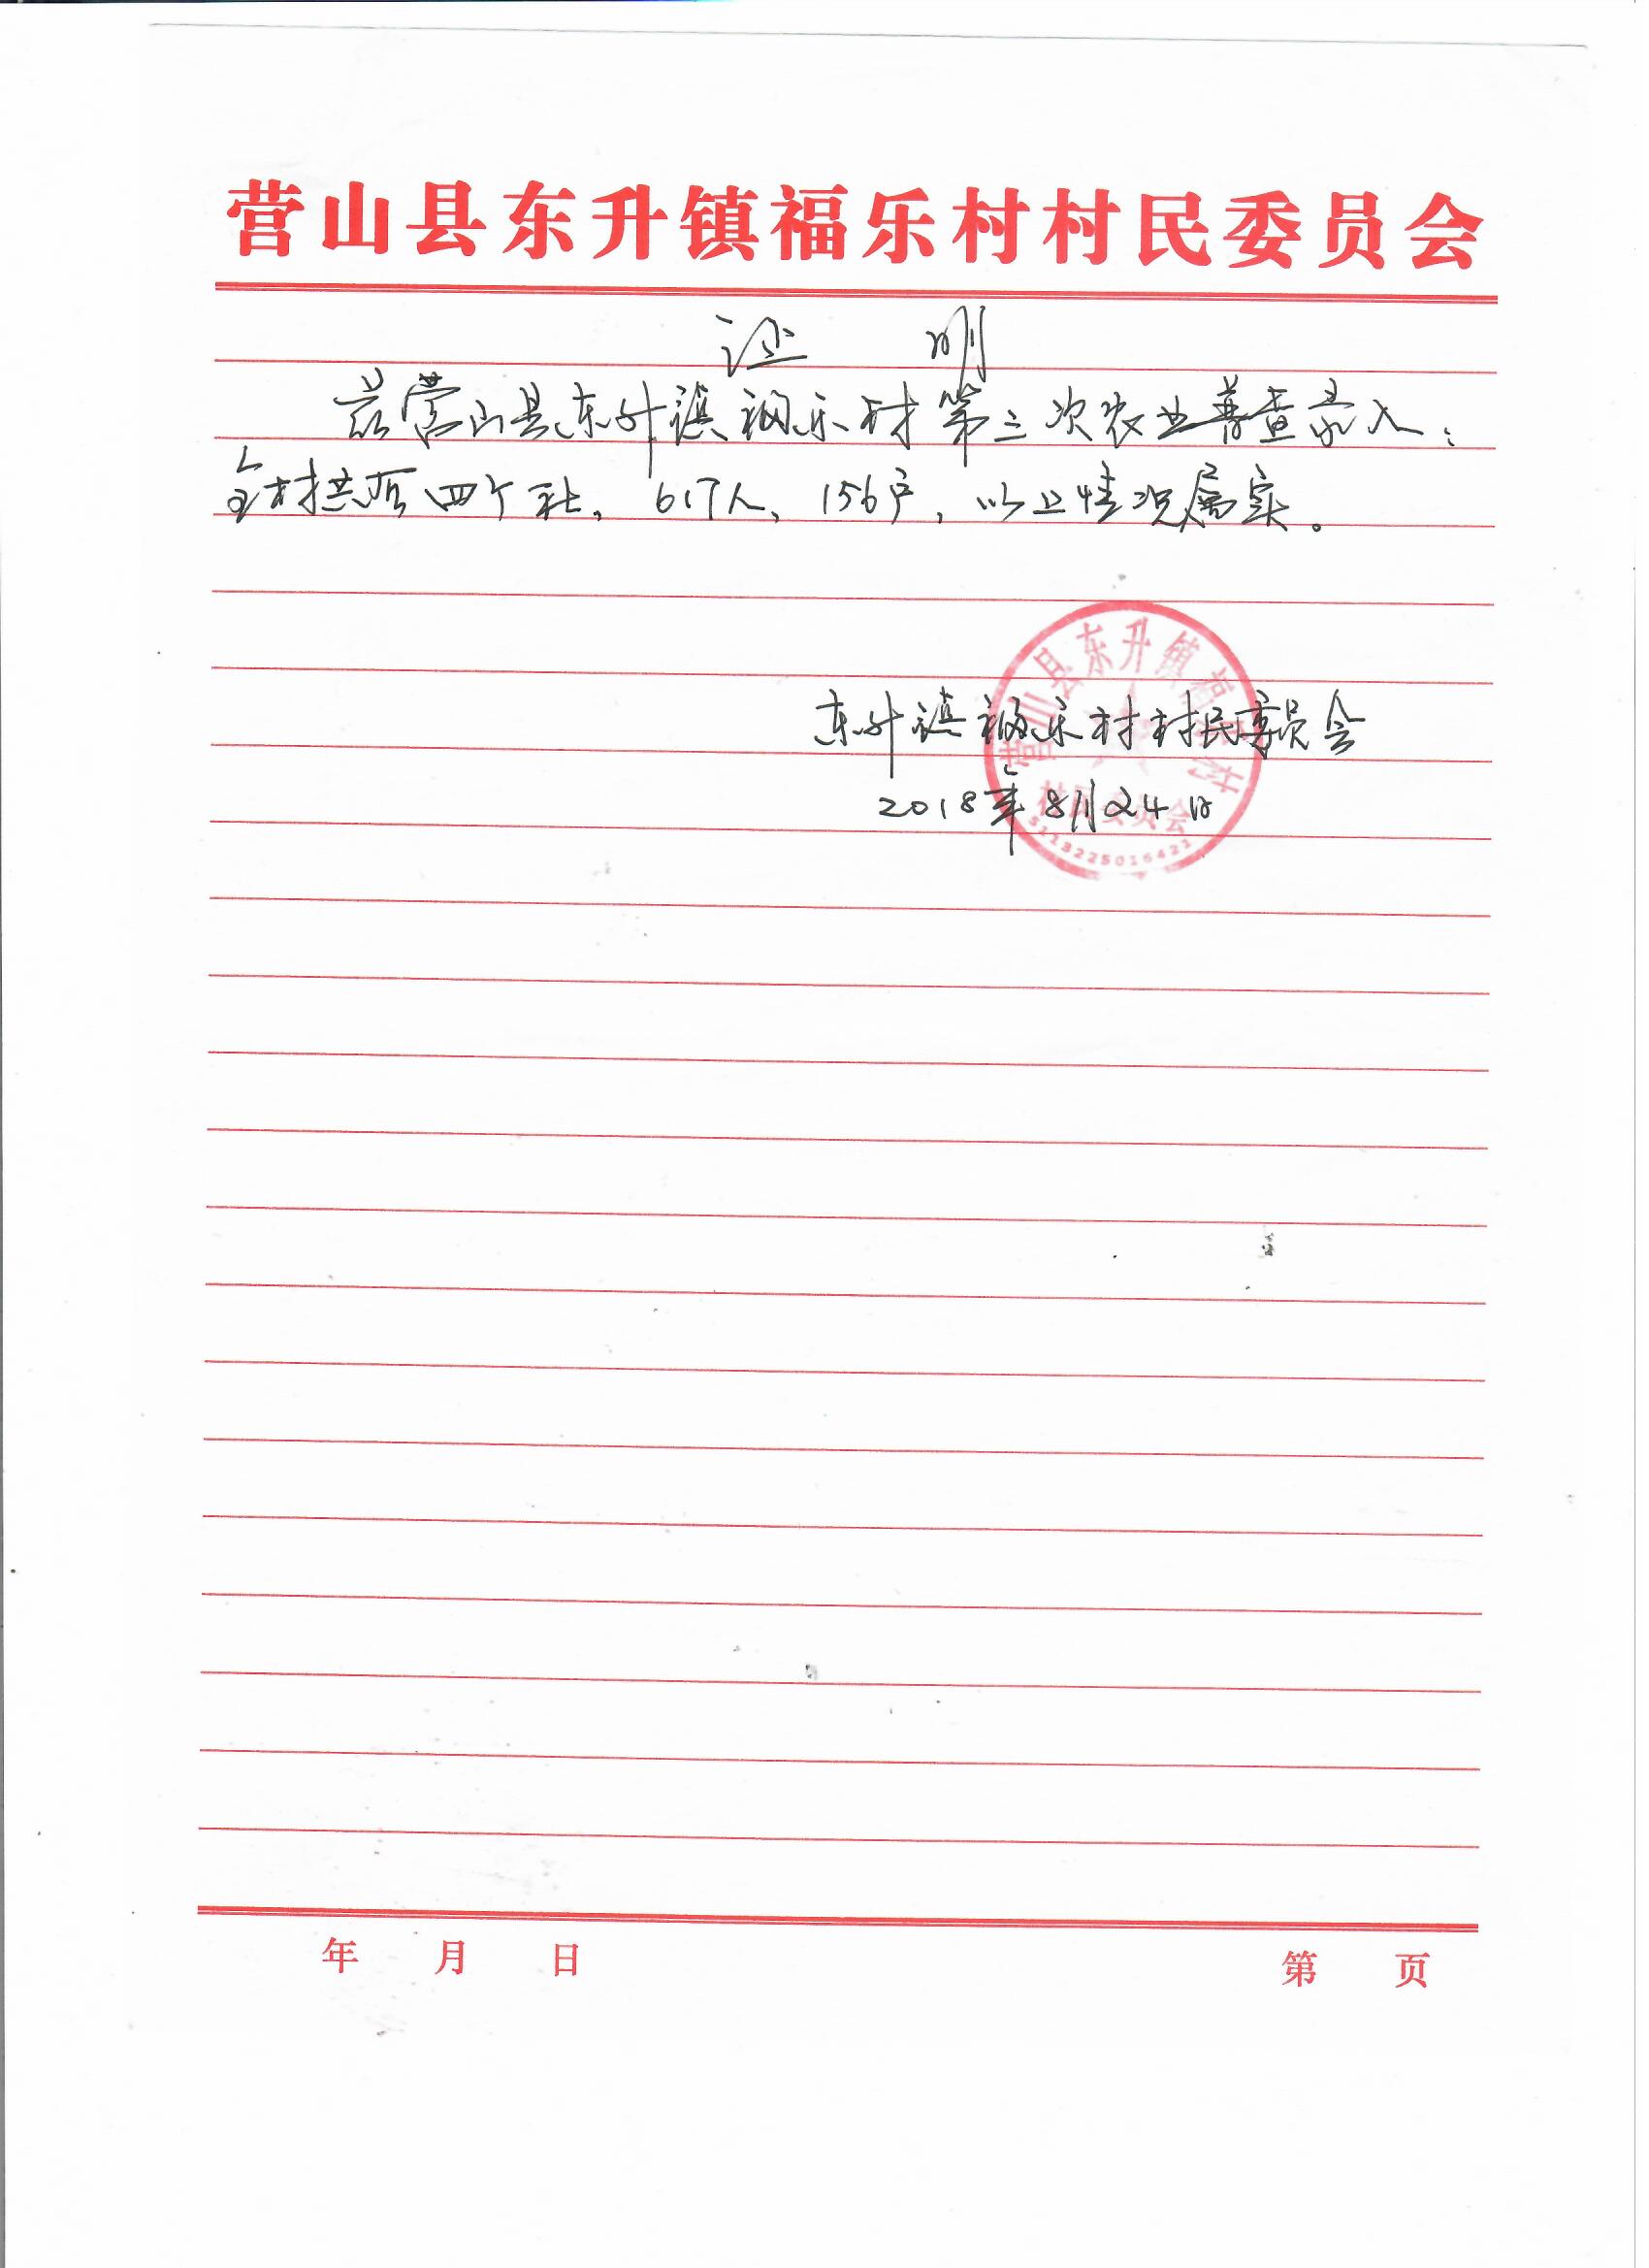 营山县东升镇福乐村村民委员会
证 明
兹营山县东升镇福乐村第三次农业普查录入:
全村共有四个社,617人,156户,以上情况属实。
营山县东升镇福乐村
东升镇福乐村村民委员会
2018年8月24日
村民委员会
5113225016421
年 月 日 第 页